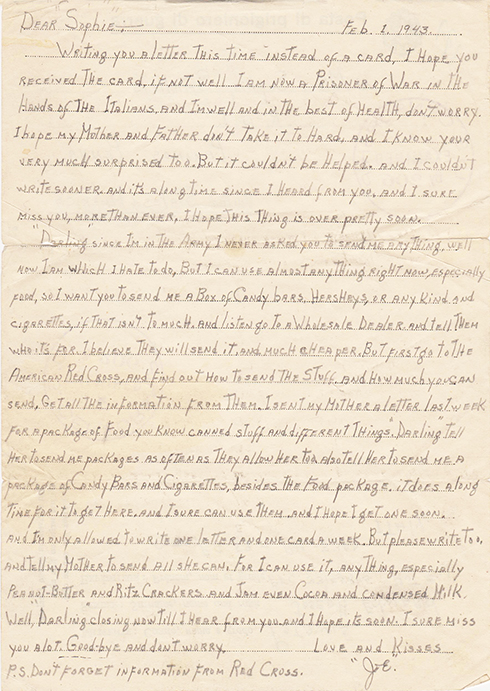 Dear Sophie:- Feb. 1. 1943.
Writing you a letter this time instead of a card, I hope you
received the card, if not well I am now a Prisoner of War in the
Hands of the Italians. and I'm well and in the best of Health, don't worry.
I hope my Mother and Father don't take it to Hard, and I know your
very much surprised too. But it couldn't be Helped. and I couldn't
write sooner. and it's along time since I heard from you, and I sure
miss you, more than ever, I hope this thing is over pretty soon.
"Darling" since I'm in the Army I never asked you to send me anything, well
now I am which I hate to do, But I can use almost anything right now, especially
food, so I want you to send me a Box of Candy bars, Hersheys, or any kind and
cigarettes, if that isn't to much. and listen go to a Wholesale Dealer, and tell them
who its for. I believe they will send it, and much cheaper. But first go to the
American Red Cross, and find out how to send the stuff. and how much you can
send, Get all the information from them. I sent my Mother a letter last week
for a package of food you know canned stuff and different things. Darling" tell
Her to send me packages as often as they allow her too also tell Her to send me a
package of Candy Bars and Cigarettes, besides the food package. it does along
time for it to get here, and I sure can use them. and I hope I get one soon.
And I'm only allowed to write one letter and one card a week. But please write too,
and tell my Mother to send all she can. For I can use it, anything, especially
Peanot-Butter and Ritz Crackers. and Jam even Cocoa and condensed Milk.
Well, "Darling" closing now till I hear from you. and I hope it's soon. I sure miss
you alot. Good-bye and don't worry. Love and Kisses
P.S. Don't forget information from Red Cross. "Joe.